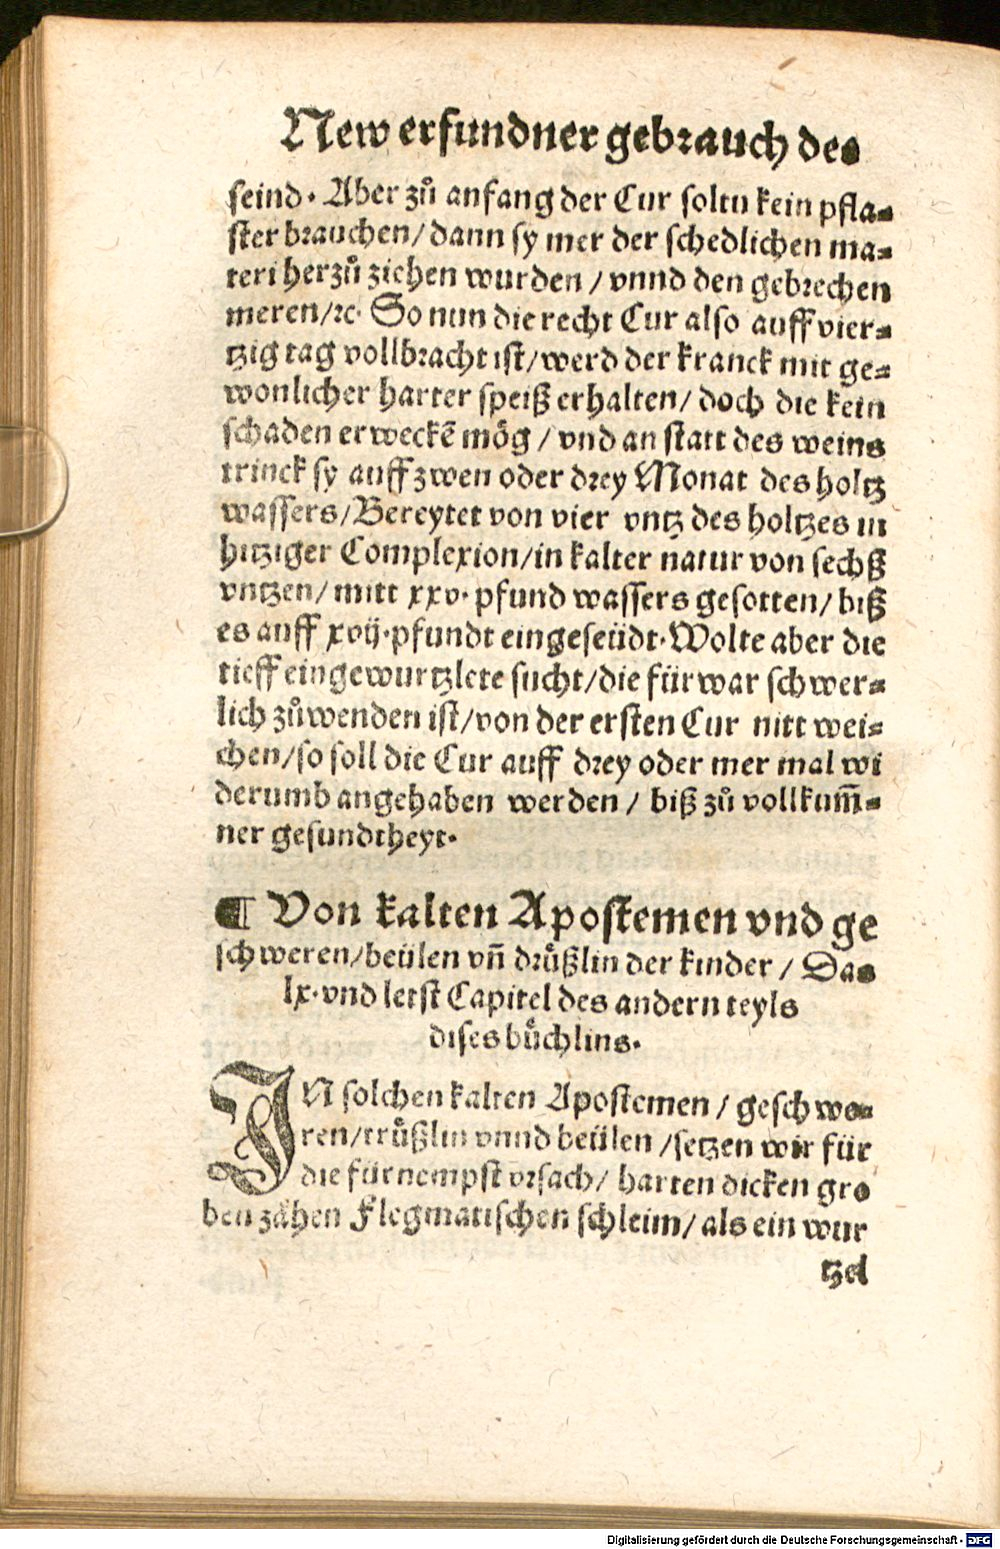 New erfundner gebrauch des
seind. Aber zů anfang der Cur soltu kein pfla⸗
ster brauchen/dann sy mer der schedlichen ma⸗
teri herzů ziehen wurden / vnnd den gebrechen
meren/ꝛc. So nun die recht Cur also auff vier⸗
tzig tag vollbracht ist/werd der kranck mit ge⸗
wonlicher harter speiß erhalten/ doch die kein
schaden erweckē mög / vnd an statt des weins
trinck sy auff zwen oder drey Monat des holtz
wassers/Bereytet von vier vntz des holtzes in
hitziger Complexion/in kalter natur von sechß
vntzen/ mitt xxv. pfund wassers gesotten/ biß
es auff xvij.pfundt eingeseüdt. Wolte aber die
tieff eingewurtzlete sucht/die fürwar schwer⸗
lich zůwenden ist/von der ersten Cur nitt wei⸗
chen/so soll die Cur auff drey oder mer mal wi
derumb angehaben werden / biß zů vollkum̄⸗
ner gesundtheyt.
¶ Von kalten Apostemen vnd ge
schweren/beülen vn̄ drůßlin der kinder / Das
lx. vnd letst Capitel des andern teyls
dises bůchlins.
IN solchen kalten Apostemen / geschwe⸗
ren/trůßlin vnnd beülen /setzen wir für
die fürnempst vrsach/ harten dicken gro
ben zähen Flegmatischen schleim/ als ein wur
tzel
Digitalisierung gefördert durch die Deutsche Forschungsgemeinschaft - DFG